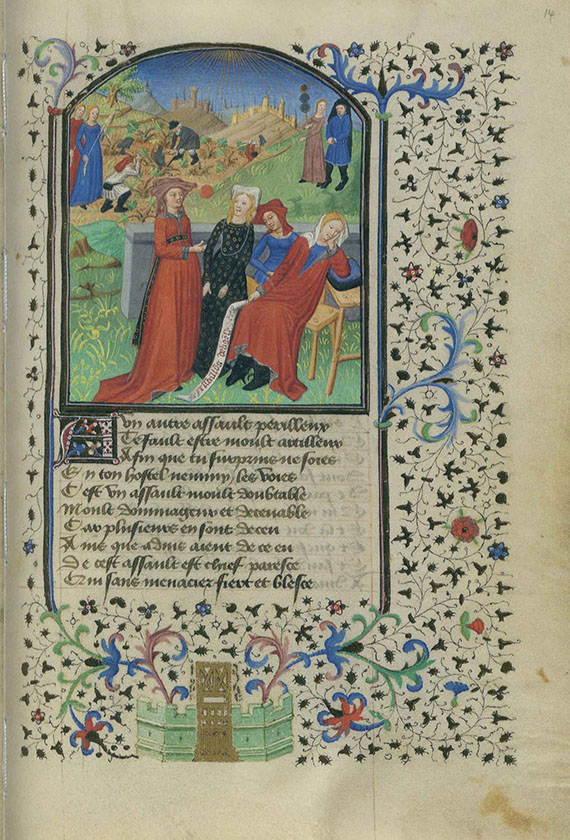 14
A Ung autre assault perilleux
Te fault estre moult artilleux
Afin que tu surprins ne soies
En ton hostel nemmy les voies
C est un assault moult doubtable
Moult dommageux et decevable
Car plusieurs en sont deceu
Ains que advis aient de ce eu
De cest assault est chief paresce
Qui sans menacier fiert et blesce